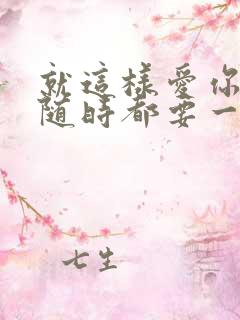 就這樣愛你
随時都要一
七生